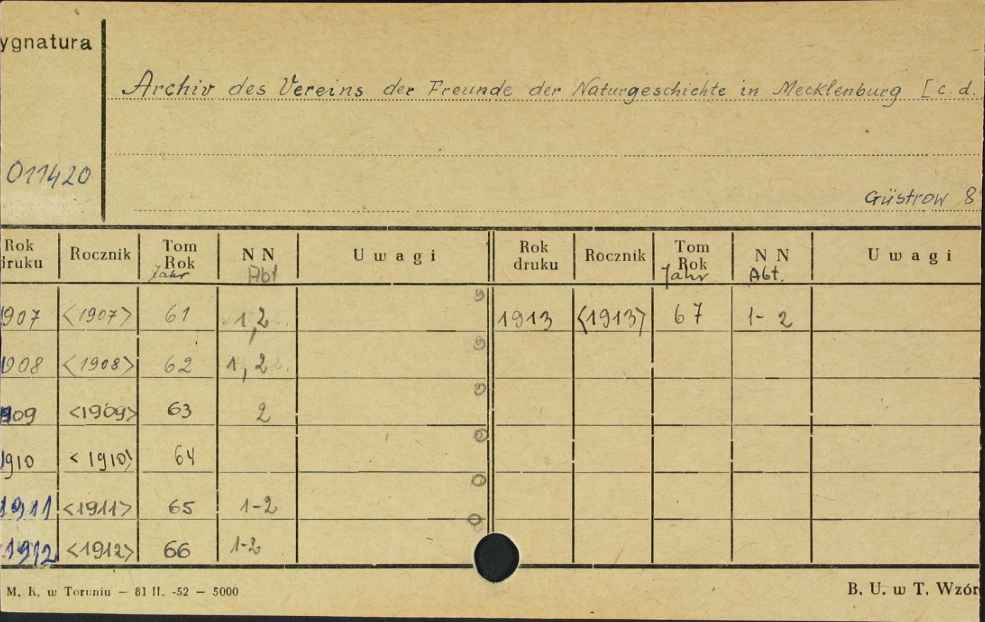 ygnatura
Archiv des Vereins der Freunde der Naturgeschichte in Mecklenburg [c.d.
011420
Güstrow 8
Rok druku Rocznik Tom Rok Jahr NN Abt Uwagi Rok druku Rocznik Tom Rok Jahr NN Abt. Uwagi
1907 <1907> 61 1,2 1913 <1913> 67 1-2
1908 <1908> 62 1,2
1909 <1909> 63 2
1910 <1910> 64
1911 <1911> 65 1-2
1912 <1912> 66 1-2
M. K. w Toruniu — 81 II. -52 — 5000 B. U. w T. Wzór